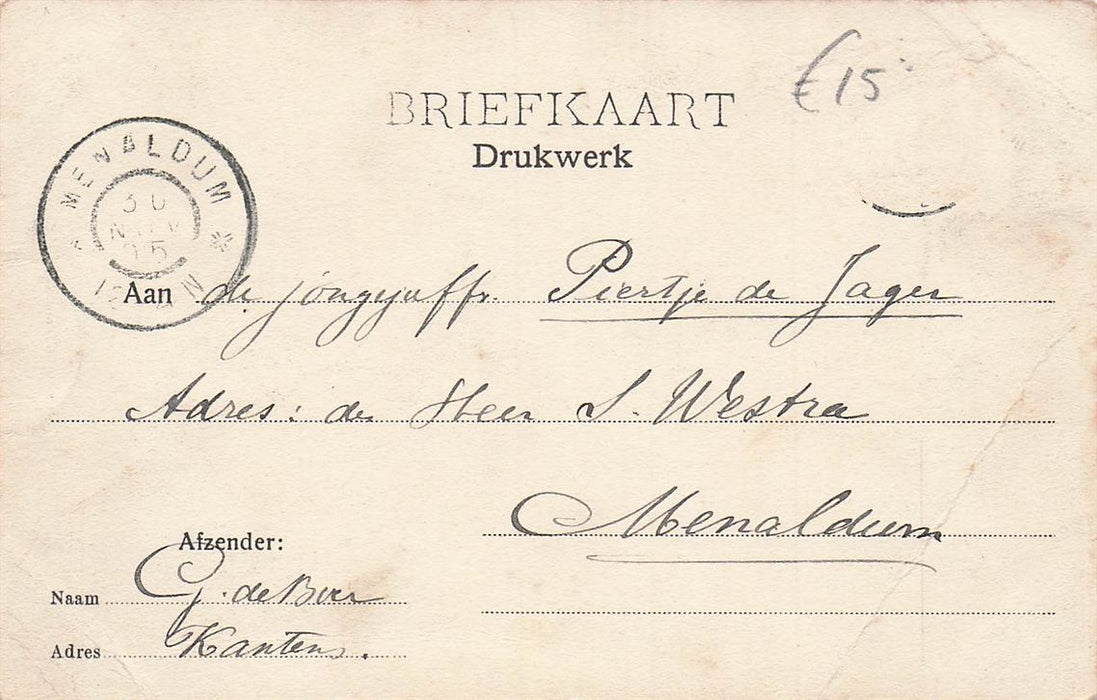 €15
BRIEFKAART
Drukwerk
MENALDUM
30
NOV
05
12 N
Aan de jongejuffr. Piertje de Jager
Adres: den Heer S. Westra
Menaldum
Afzender:
Naam G. de Boer
Adres Kantens.